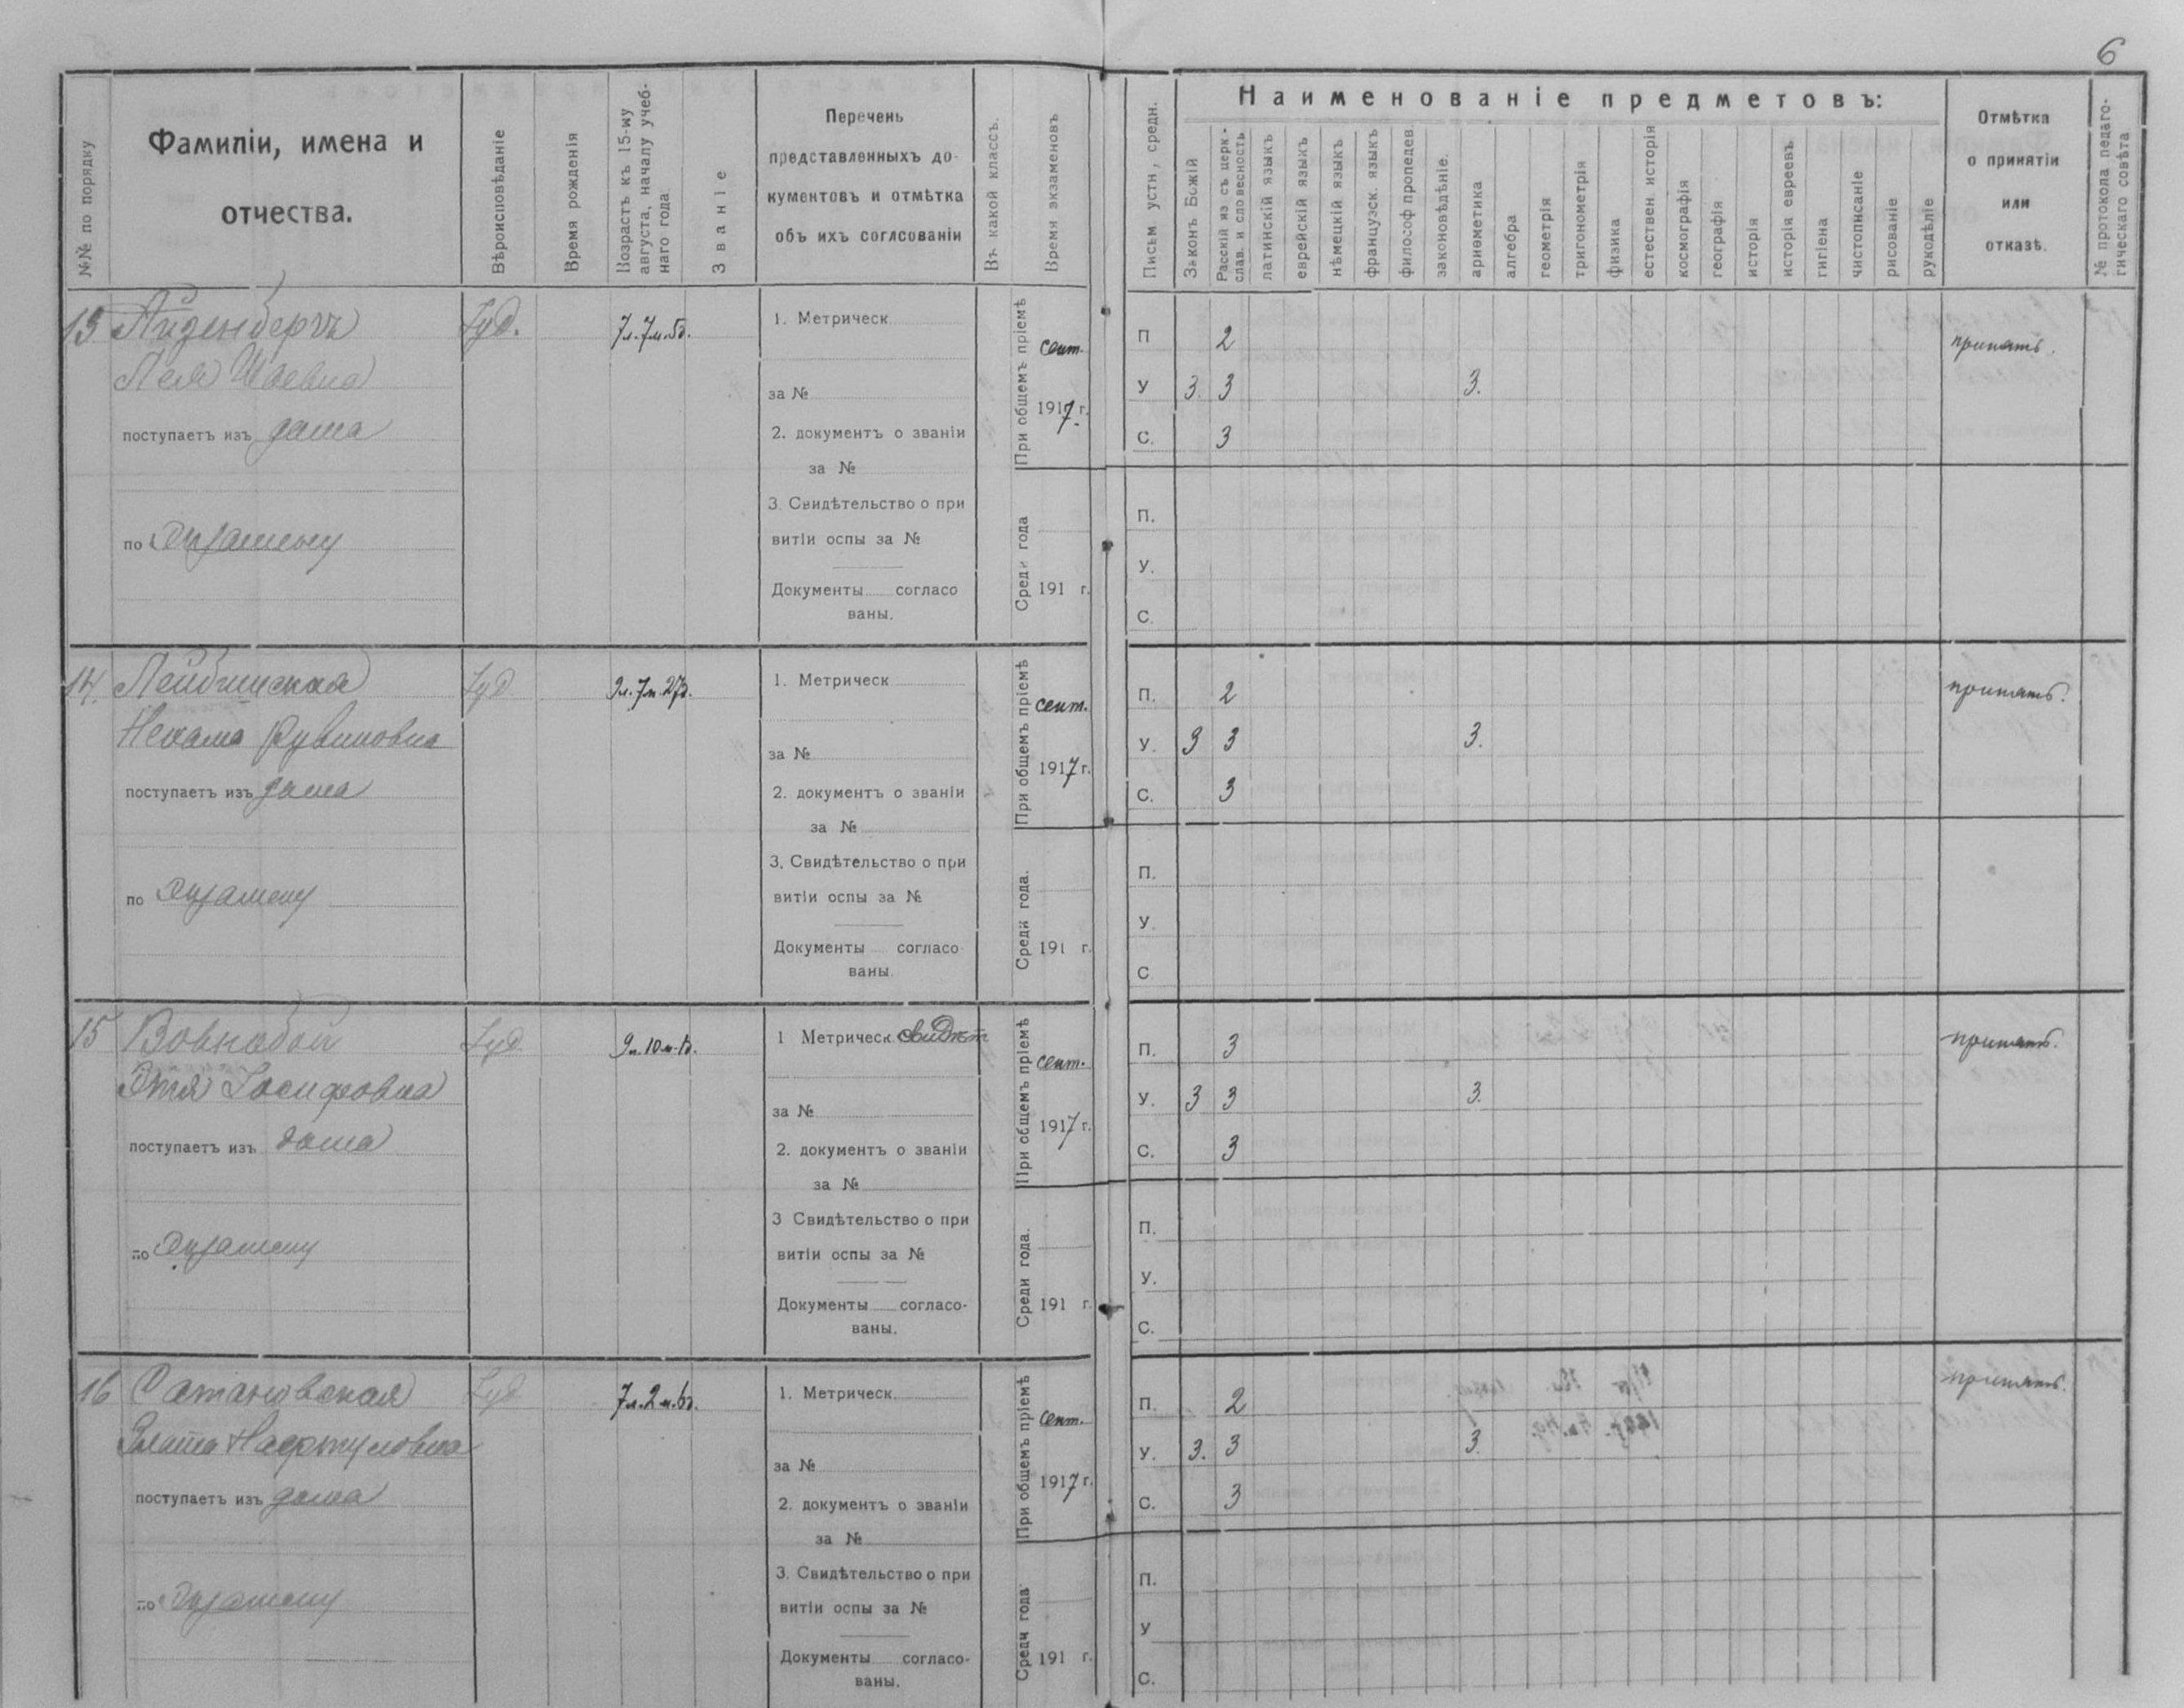 6
№№ по порядку
Фамиліи, имена и
отчества.
Вѣроисповѣданіе
Время рожденія
Возрастъ къ 15-му
августа, началу учеб-
наго года
Званіе
Перечень
представленныхъ до-
кументовъ и отмѣтка
объ ихъ соглсованіи
Въ какой классъ.
Время экзаменовъ
Письм устн, средн.
Наименованіе предметовъ:
Законъ Божій
Расскій яз съ церк-
слав. и словесность
латинскій языкъ
еврейскій языкъ
нѣмецкій языкъ
французск. языкъ
философ пропедев.
законовѣдѣніе.
ариөметика
алгебра
геометрія
тригонометрія
физика
естествен. исторія
космографія
географія
исторія
исторія евреевъ
гигіена
чистописаніе
рисованіе
рукодѣліе
Отмѣтка
о принятіи
или
отказѣ.
№ протокола педаго-
гическаго совѣта
13 Айзенбергъ Іуд. 7л.7м.5д.
Лея Шаевна
поступаетъ изъ дома
по Экзамену
1. Метрическ
за №
2. документъ о званіи
за №
3. Свидѣтельство о при
витіи оспы за №
Документы согласо
ваны.
При общемъ пріемѣ
сент.
1917 г.
Среди года
191 г.
П 2
У 3. 3 3.
С. 3
принять.
П.
У.
С.
14. Лейбчинская Іуд 9л.7м.27д.
Нехама Рувиновна
поступаетъ изъ дома
по Экзамену
1. Метрическ
за №
2. документъ о званіи
за №
3. Свидѣтельство о при
витіи оспы за №
Документы согласо
ваны.
При общемъ пріемѣ
сент.
1917 г.
Среди года.
191 г.
П. 2
У. 3 3 3.
С. 3
принять.
П.
У
С
15 Вовнобой Іуд. 9л.10м.1д.
Этя Іосифовна
поступаетъ изъ дома
по Экзамену
1 Метрическ свидѣт
за №
2. документъ о званіи
за №
3 Свидѣтельство о при
витіи оспы за №
Документы согласо-
ваны.
При общемъ пріемѣ
сент.
1917 г.
Среди года.
191 г.
П. 3
У. 3 3 3.
С. 3
принять.
П.
У.
С.
16 Сатановская Іуд 7л.2м.6д.
Злата Нафтуловна
поступаетъ изъ дома
по Экзамену
1. Метрическ.
за №
2. документъ о званіи
за №
3. Свидѣтельство о при
витіи оспы за №
Документы согласо-
ваны.
При общемъ пріемѣ
сент.
1917 г.
Среди года
191 г.
П. 2
У. 3. 3 3.
С. 3
принять.
П.
У
С.